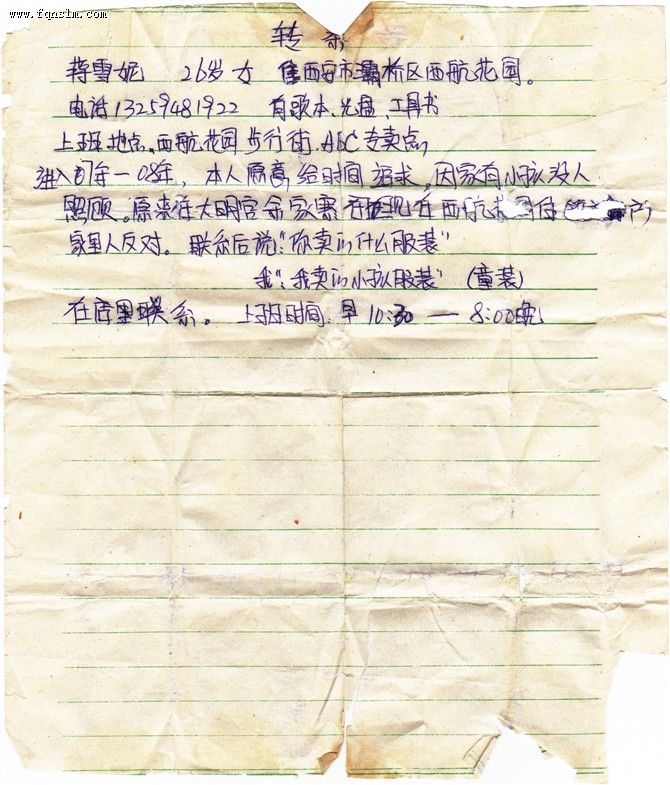 www.fqnslm.com
转 系
蒋雪妮 26岁 女 住西安市灞桥区西航花园。
电话13259481922 有歌本、光盘、工具书
上班地点、西航花园步行街、ABC专卖点,
进入07年一08年, 本人愿意给时间追求, 因家有小孩没人
照顾。原来在大明宫 家 现在西航 住
家里人反对。 联系后说:"你卖的什么服装"
我:"我卖的小孩服装" (童装)
在店里联系。 上班时间: 早10:30 — 8:00晚